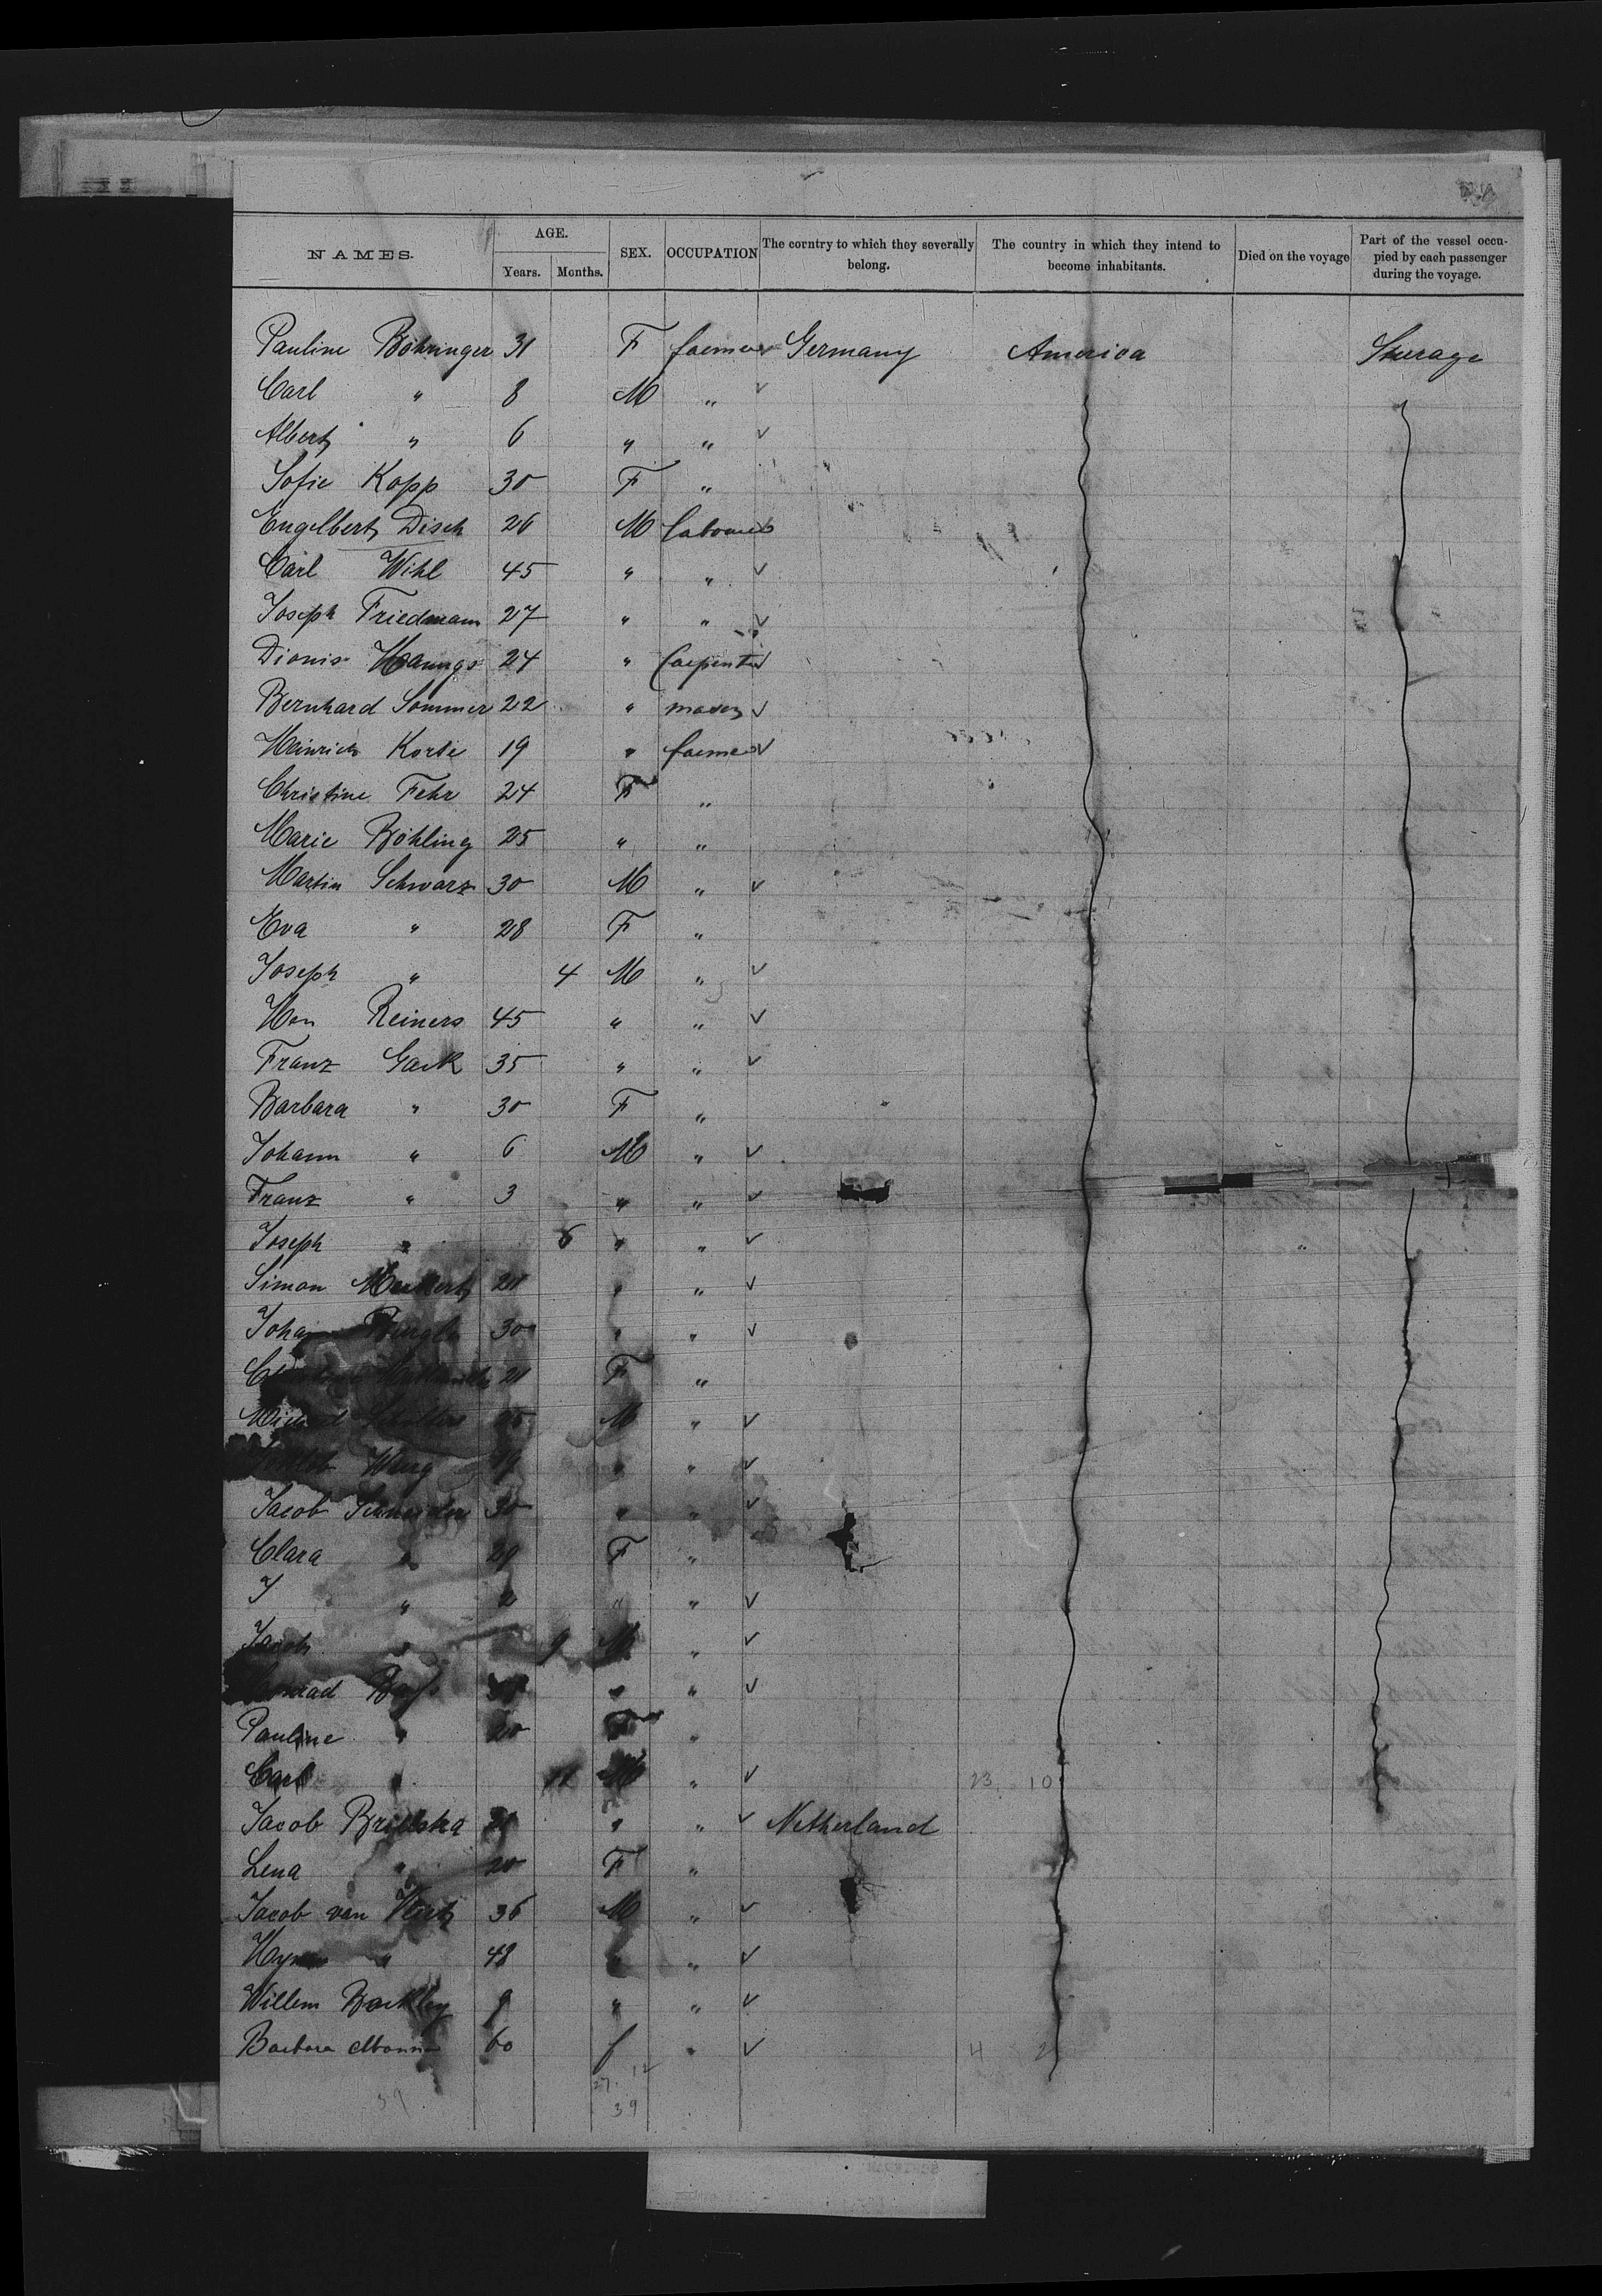 NAMES. AGE. Years. Months. SEX. OCCUPATION The corntry to which they severally belong. The country in which they intend to become inhabitants. Died on the voyage Part of the vessel occupied by each passenger during the voyage.
Pauline Böhringer 31 F farmer Germany America Steerage
Carl " 8 M " ✓
Albert " 6 " " ✓
Sofie Kopp 30 F "
Engelbert Disch 26 M labourer
Carl Wihl 45 " " ✓
Joseph Friedmann 27 " " ✓
Dionis 24 " Carpenter ✓
Bernhard Sommer 22 " mason ✓
Heinrich Korte 19 " farmer ✓
Christine Fehr 24 F "
Marie Böhling 25 " "
Martin Schwarz 30 M " ✓
Eva " 28 F "
Joseph " 4 M " ✓
Hen Reiners 45 " " ✓
Franz Gack 35 " " ✓
Barbara " 30 F "
Johann " 6 M " ✓
Franz " 3 " " ✓
Joseph " 6 " " ✓
Simon 21 " " ✓
30 " " ✓
21 F "
M " ✓
" " ✓
Jacob Schneider 30 " " ✓
Clara " 29 F "
J " 2 " " ✓
Jacob " 9 M " ✓
" " ✓
Pauline " 20 F "
Carl " 11 M " ✓ 23 10
Jacob " " ✓ Netherland
Lena " 20 F "
Jacob van 36 M " ✓
" 48 " " ✓
Willem 9 " " ✓
Barbara 60 f " ✓ 4 2
27 12
39 39